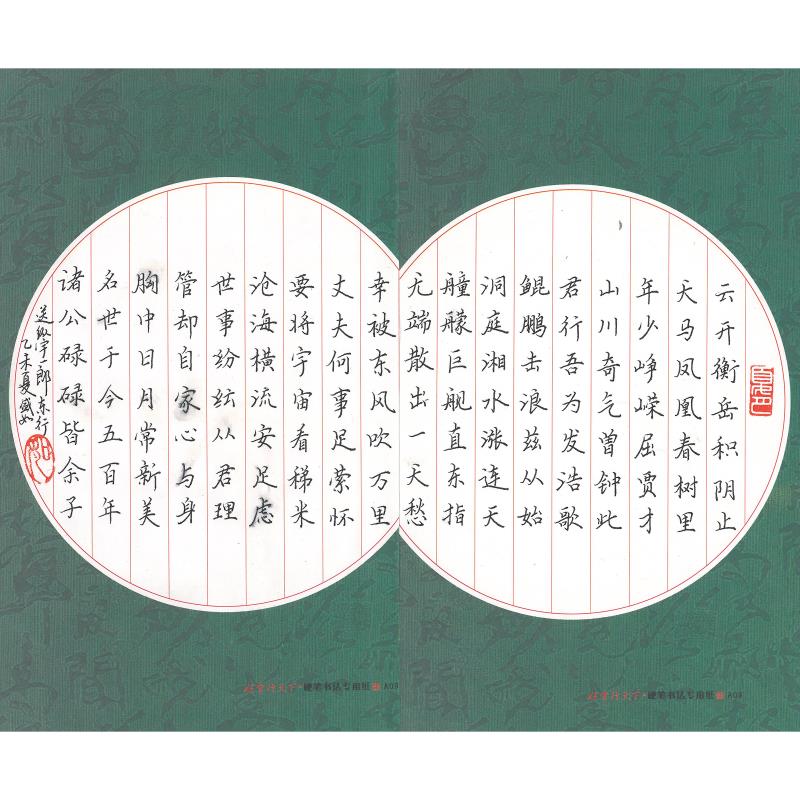 云开衡岳积阴止
天马凤凰春树里
年少峥嵘屈贾才
山川奇气曾钟此
君行吾为发浩歌
鲲鹏击浪兹从始
洞庭湘水涨连天
艟艨巨舰直东指
无端散出一天愁
幸被东风吹万里
丈夫何事足萦怀
要将宇宙看稊米
沧海横流安足虑
世事纷纭从君理
管却自家心与身
胸中日月常新美
名世于今五百年
诸公碌碌皆余子
送纵宇一郎东行
乙未夏盛如
硬笔书法专用纸 A09
硬笔书法专用纸 A09